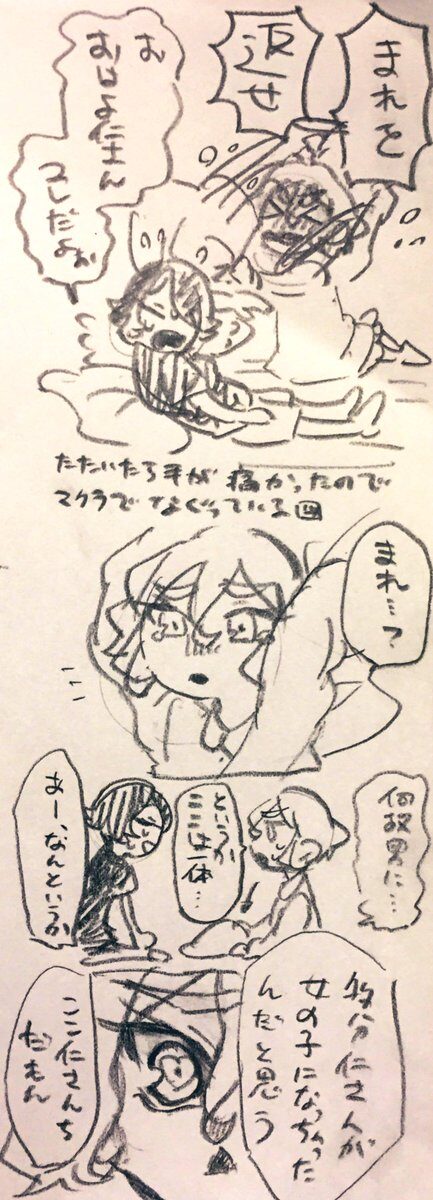 まれを
返せ
お
おはよ仁さん
オレだよぉ
たたいたら手が痛かったので
マクラでなぐっている図
まれ…?
何故男に…
というか
ここは一体…
あー、なんというか
多分仁さんが
女の子になっちゃった
んだと思う
ここ仁さんち
だもん